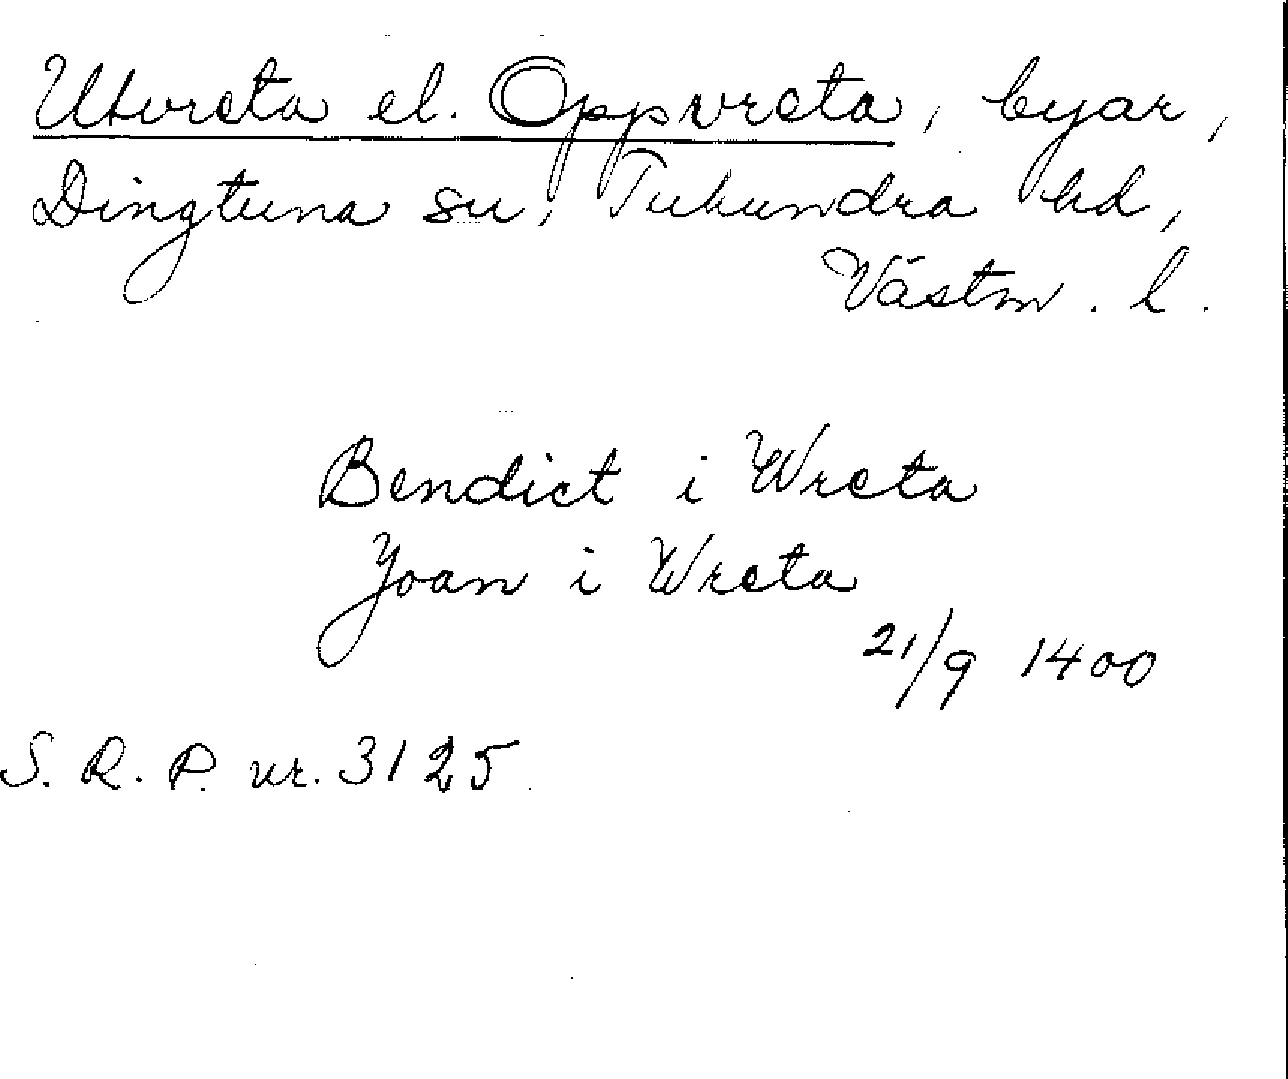 Utvreta el. Oppvreta, byar,
Dingtuna sn, Tuhundra hd,
Västm. l.
Bendict i Wreta
Joan i Wreta
21/9 1400
S. R. P. nr. 3125